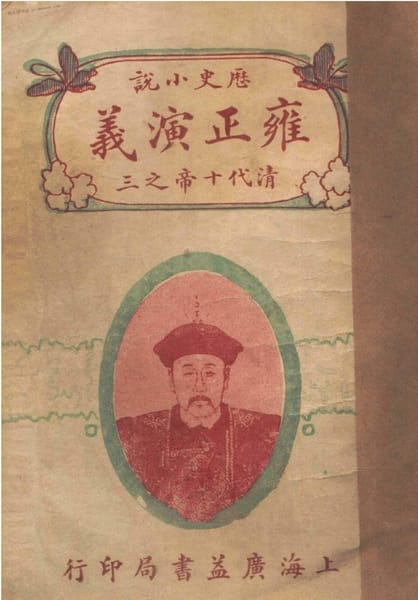 歷史小說
雍正演義
清代十帝之三
上海廣益書局印行